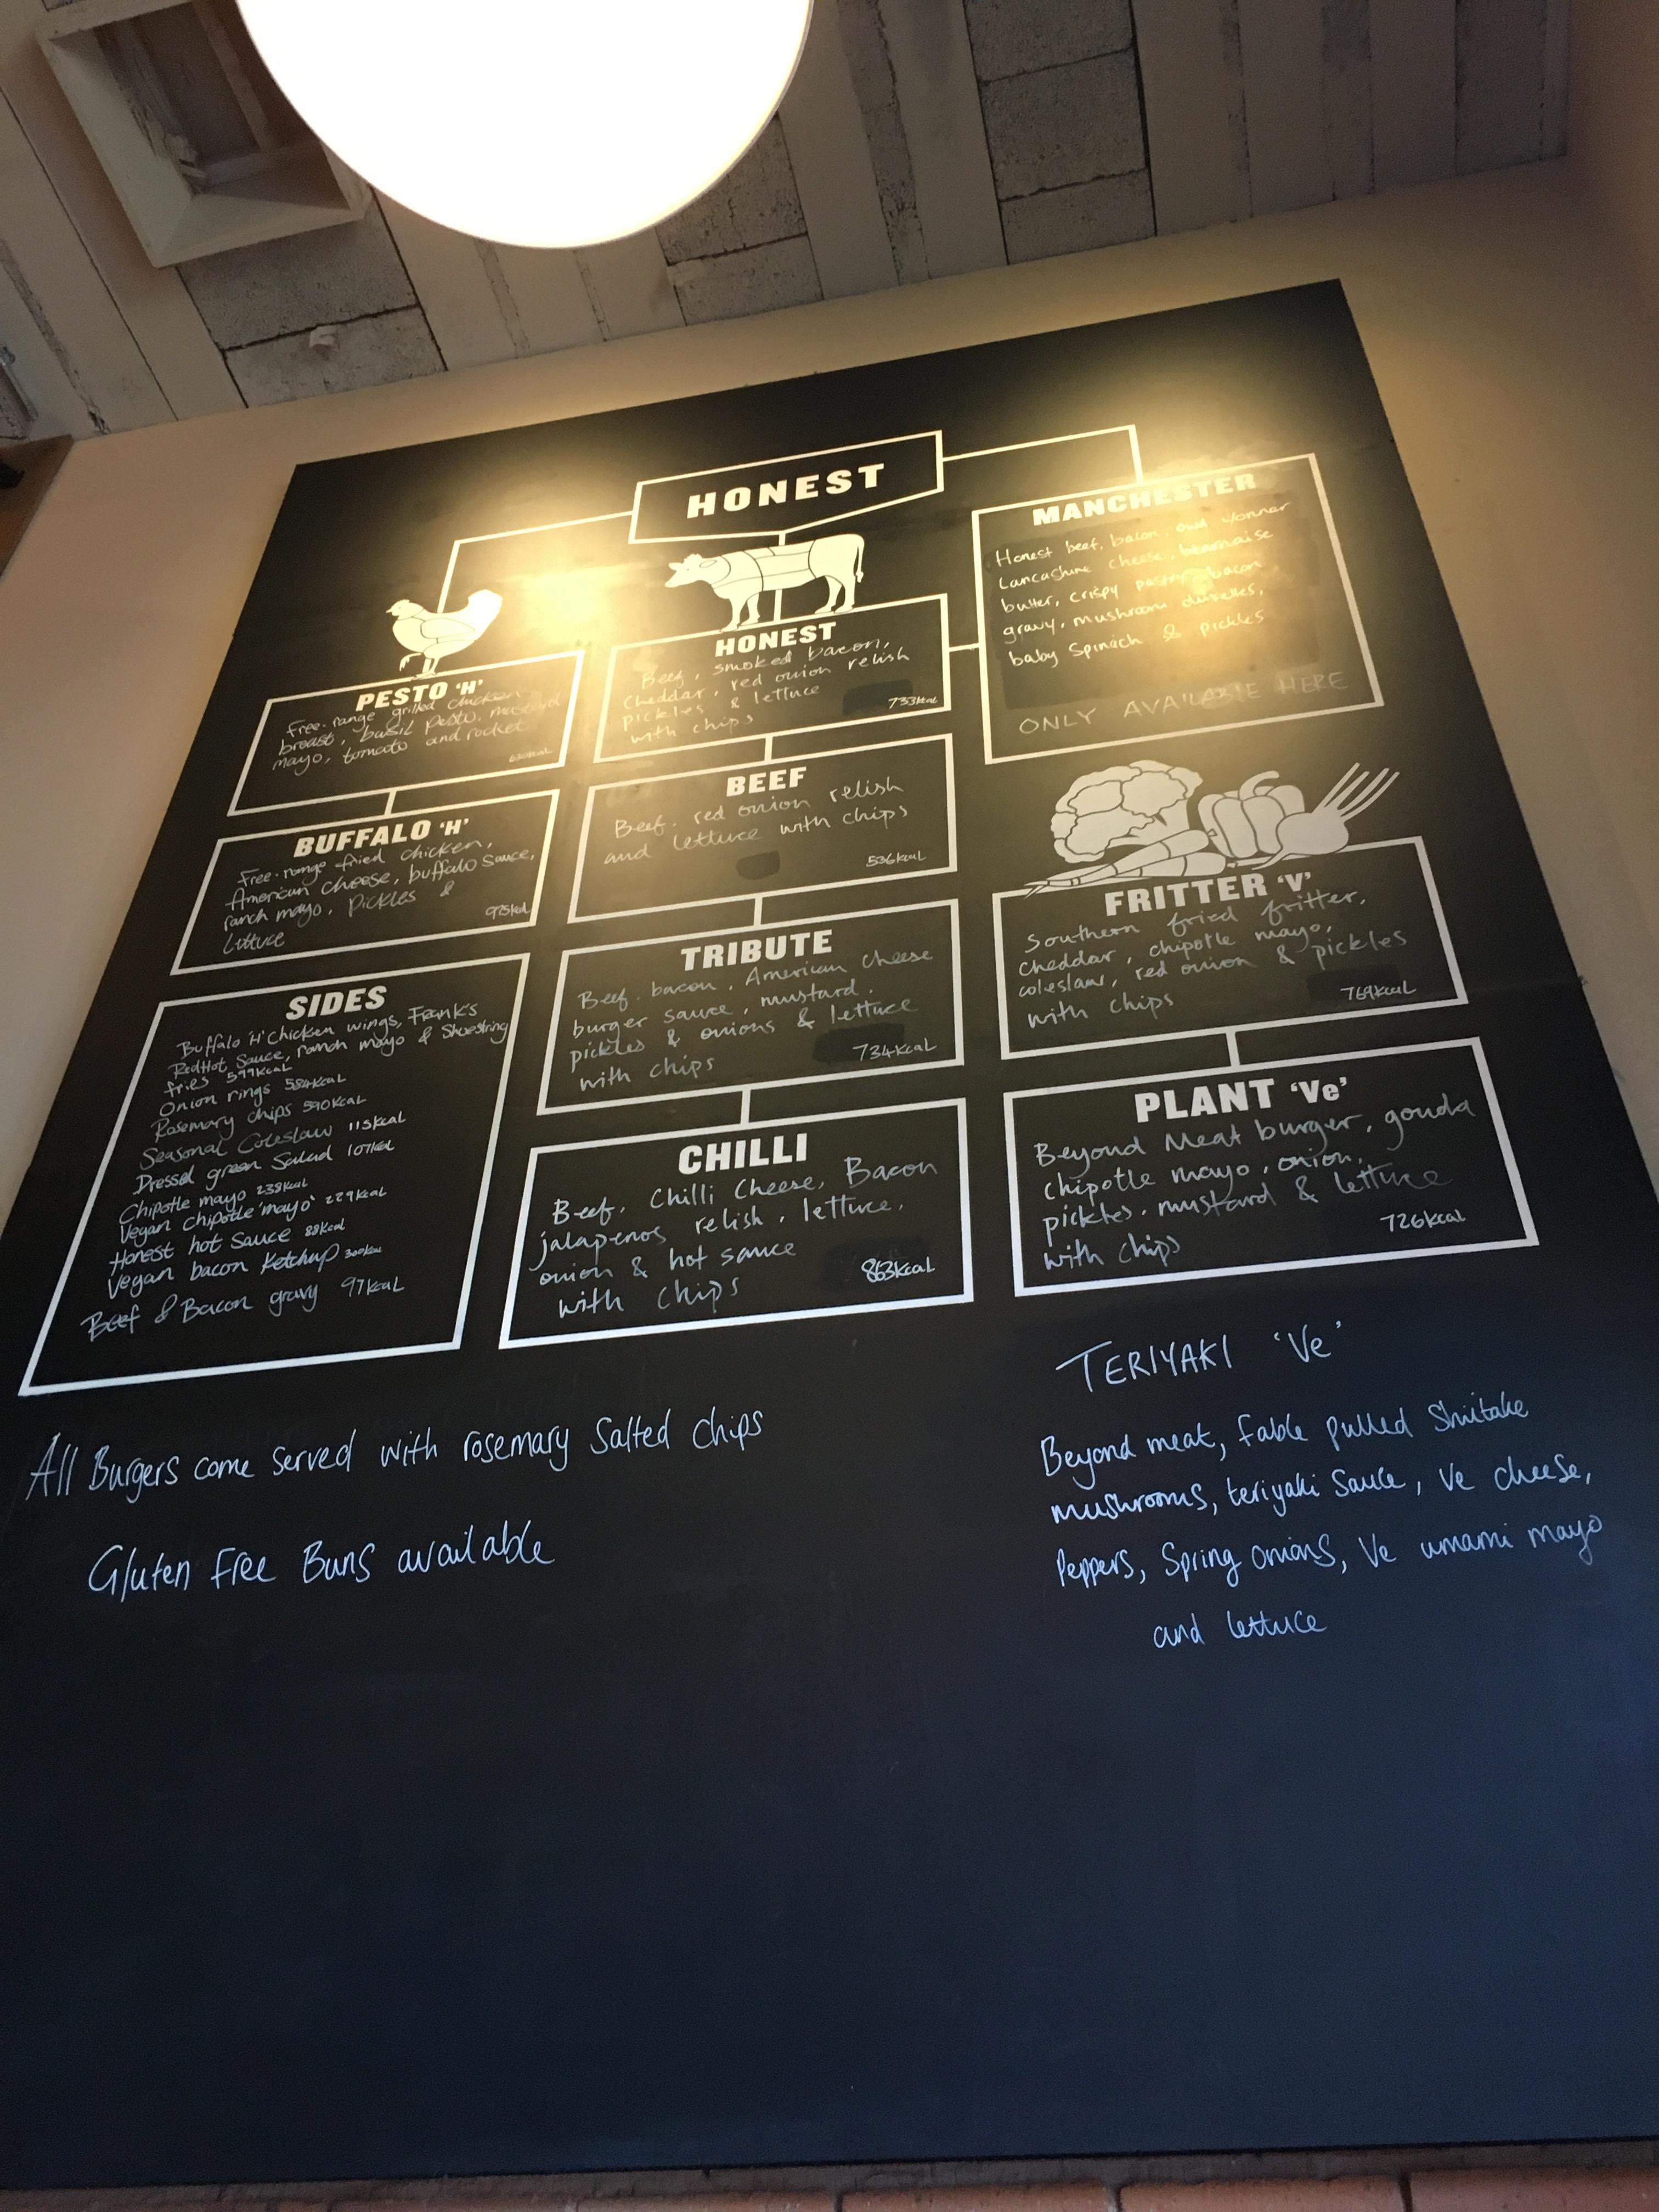 HONEST
PESTO 'H'
Free-range grilled chicken
breast, basil pesto, mustard
mayo, tomato and rocket
BUFFALO 'H'
Free-range fried chicken,
American cheese, buffalo sauce,
ranch mayo, pickles &
Lettuce
SIDES
Buffalo 'H' Chicken wings, Frank's
RedHot Sauce, ranch mayo & Shoestring
fries 599kcal
Onion rings 584kcal
Rosemary chips 590kcal
Seasonal Coleslaw 115kcal
Dressed green Salad 107kcal
Chipotle mayo 238kcal
Vegan chipotle 'mayo' 229kcal
Honest hot sauce 88kcal
Vegan bacon Ketchup 300kcal
Beef & Bacon gravy 97kcal
HONEST
Beef, smoked bacon,
Cheddar, red onion relish
pickles & lettuce
with chips
733kcal
BEEF
Beef. red onion relish
and lettuce with chips
536kcal
TRIBUTE
Beef. bacon. American cheese
burger sauce, mustard.
pickles & onions & lettuce
with chips
734kcal
CHILLI
Beef, Chilli Cheese, Bacon
jalapenos relish, lettuce,
onion & hot sauce
with chips
863kcal
MANCHESTER
Honest beef, bacon, owd yonner
Lancashire cheese, béarnaise
butter, crispy pastry, bacon
gravy, mushroom duxelles,
baby Spinach & pickles
ONLY AVAILABLE HERE
FRITTER 'V'
Southern fried fritter,
cheddar, chipotle mayo,
coleslaw, red onion & pickles
with chips
769kcal
PLANT 'Ve'
Beyond Meat burger, gouda
chipotle mayo, onion,
pickles, mustard & lettuce
with chips
726kcal
TERIYAKI 'Ve'
Beyond meat, Fable pulled Shiitake
mushrooms, teriyaki Sauce, Ve cheese,
Peppers, Spring onions, Ve umami mayo
and lettuce
All Burgers come served with rosemary Salted Chips
Gluten Free Buns available